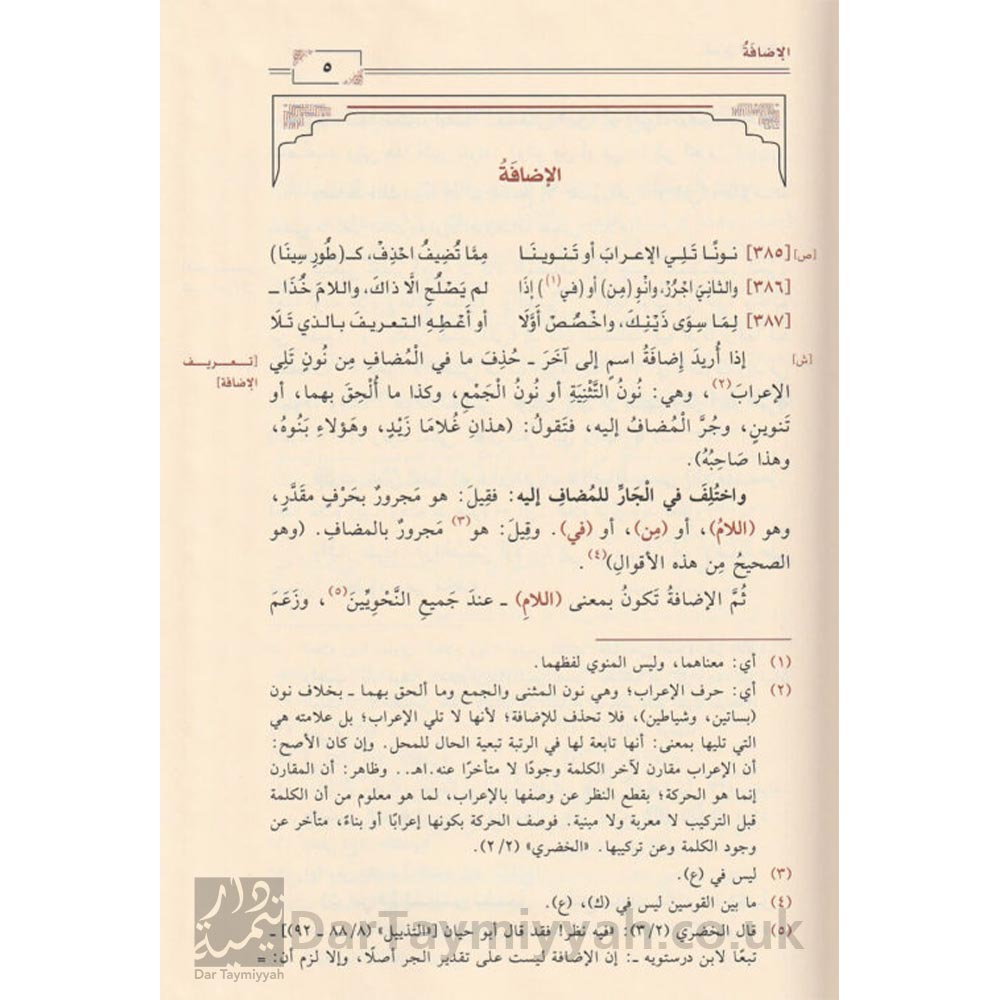 الإضَافَةُ
٥
الإضافَةُ
[ص] [٣٨٥] نـونًـا تَـلِـي الإعـرابَ أو تَـنـويـنَـا مِمَّا تُضِيفُ احْذِفْ، كـ(طُورِ سِينَا)
[٣٨٦] والثانِيَ اجْرُرْ، وانْوِ (مِن) أو (في(١)) إذَا لم يَصْلُحِ الَّا ذاكَ، واللامَ خُذَا ـ
[٣٨٧] لِمَا سِوَى ذَيْنِكَ، واخْصُصْ أوَّلَا أو أَعْطِهِ التـعريفَ بـالـذي تَـلَا
[ش] إذا أُريدَ إضافَةُ اسمٍ إلى آخَرَ ـ حُذِفَ ما في الْمُضافِ مِن نُونٍ تَلِي
[تـعـريـف
الإضافة]
الإعرابَ(٢)، وهي: نُونُ التَّثْنِيَةِ أو نُونُ الْجَمْعِ، وكذا ما أُلْحِقَ بهما، أو
تَنوينٍ، وجُرَّ الْمُضافُ إليه، فتَقولُ: (هذانِ غُلامَا زَيْدٍ، وهَؤلاءِ بَنُوهُ،
وهذا صَاحِبُهُ).
واختُلِفَ في الْجَارِّ للمُضافِ إليه: فقِيلَ: هو مَجرورٌ بحَرْفٍ مقَدَّرٍ،
وهو (اللامُ)، أو (مِن)، أو (في). وقِيلَ: هو(٣) مَجرورٌ بالمضافِ. (وهو
الصحيحُ مِن هذه الأقوالِ)(٤).
ثُمَّ الإضافةُ تَكونُ بمعنى (اللامِ) ـ عندَ جَميعِ النَّحْوِيِّينَ(٥)، وزَعَمَ
(١) أي: معناهما، وليس المنوي لفظهما.
(٢) أي: حرف الإعراب؛ وهي نون المثنى والجمع وما ألحق بهما ـ بخلاف نون
(بساتين، وشياطين)، فلا تحذف للإضافة؛ لأنها لا تلي الإعراب؛ بل علامته هي
التي تليها بمعنى: أنها تابعة لها في الرتبة تبعية الحال للمحل. وإن كان الأصح:
أن الإعراب مقارن لآخر الكلمة وجودًا لا متأخرًا عنه.اهـ.. وظاهر: أن المقارن
إنما هو الحركة؛ بقطع النظر عن وصفها بالإعراب، لما هو معلوم من أن الكلمة
قبل التركيب لا معربة ولا مبنية. فوصف الحركة بكونها إعرابًا أو بناءً، متأخر عن
وجود الكلمة وعن تركيبها. «الخضري» (٢/٢).
(٣) ليس في (ع).
(٤) ما بين القوسين ليس في (ك)، (ع).
(٥) قال الخضري (٣/٢): «فيه نظر! فقد قال أبو حيان [«التذييل» (٨٨/٨ ـ ٩٢)] ـ
تبعًا لابن درستويه ـ: إن الإضافة ليست على تقدير الجر أصلًا، وإلا لزم أن: ـ
دار تيمية
Dar Taymiyyah
DarTaymiyyah.co.uk